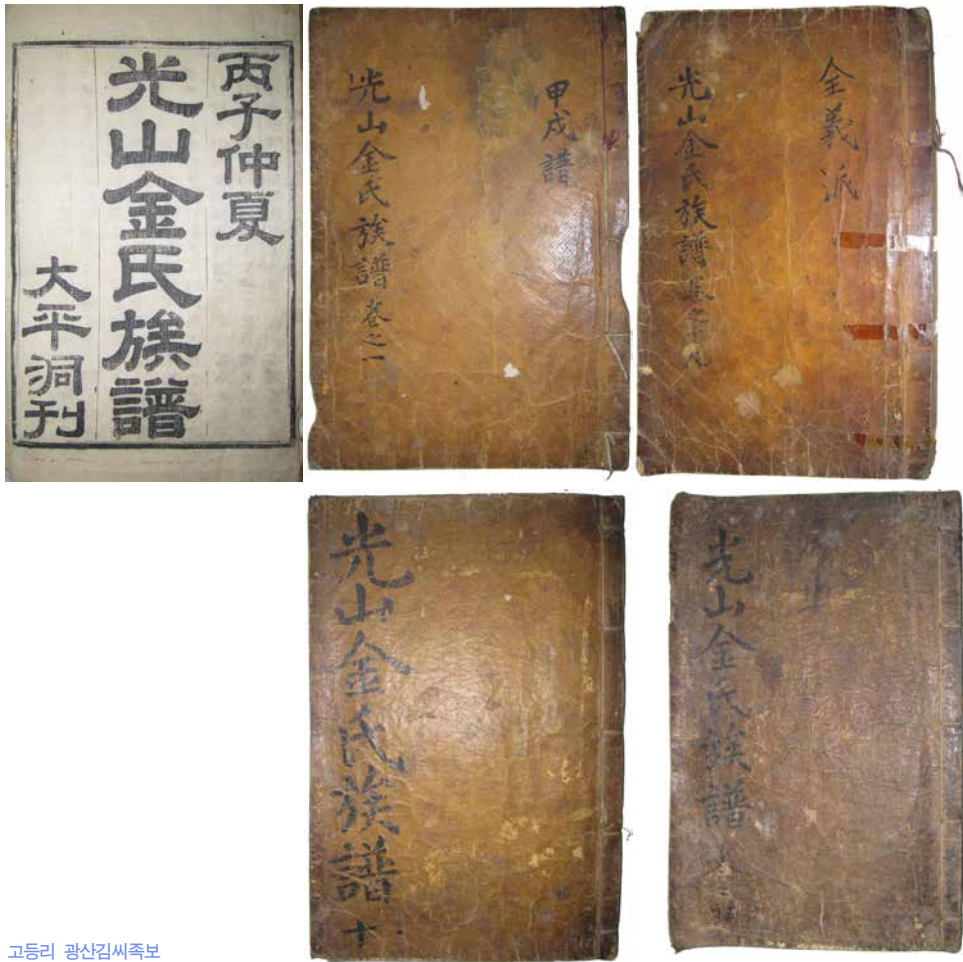 丙子仲夏
光山金氏族譜
大平洞刊
甲戌譜
光山金氏族譜 卷之一
全義派
光山金氏族譜 卷之
光山金氏族譜 十
光山金氏族譜
고등리 광산김씨족보